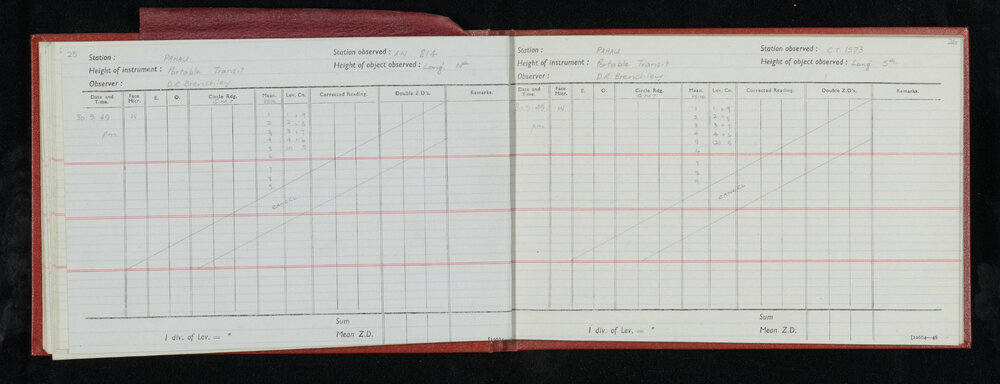 25
Station : PAHAU
Station observed : AN 814
Height of instrument : Portable Transit
Height of object observed : Long Nth
Observer : D.R. Brenchley
Date and Time. Face Micr. E. O. Circle Rdg. Mean. Lev. Cn. Corrected Reading. Double Z.D's. Remarks.
GMT
30.9.49 W 1 1 + 9
2 2 + 8
pm 3 3 + 7
4 4 + 6
5 (2) 5
6
7
8
9
CANCEL
Sum
1 div. of Lev. = " Mean Z.D.
26
Station : PAHAU
Station observed : C.T. 1573
Height of instrument : Portable Transit
Height of object observed : Long Sth
Observer : D.R. Brenchley
Date and Time. Face Micr. E. O. Circle Rdg. Mean. Lev. Cn. Corrected Reading. Double Z.D's. Remarks.
GMT
30.9.49 W 1 1 + 9
2 2 + 8
pm 3 3 + 7
4 4 + 6
5 (2) 5
6
7
8
9
CANCEL
Sum
1 div. of Lev. = " Mean Z.D.